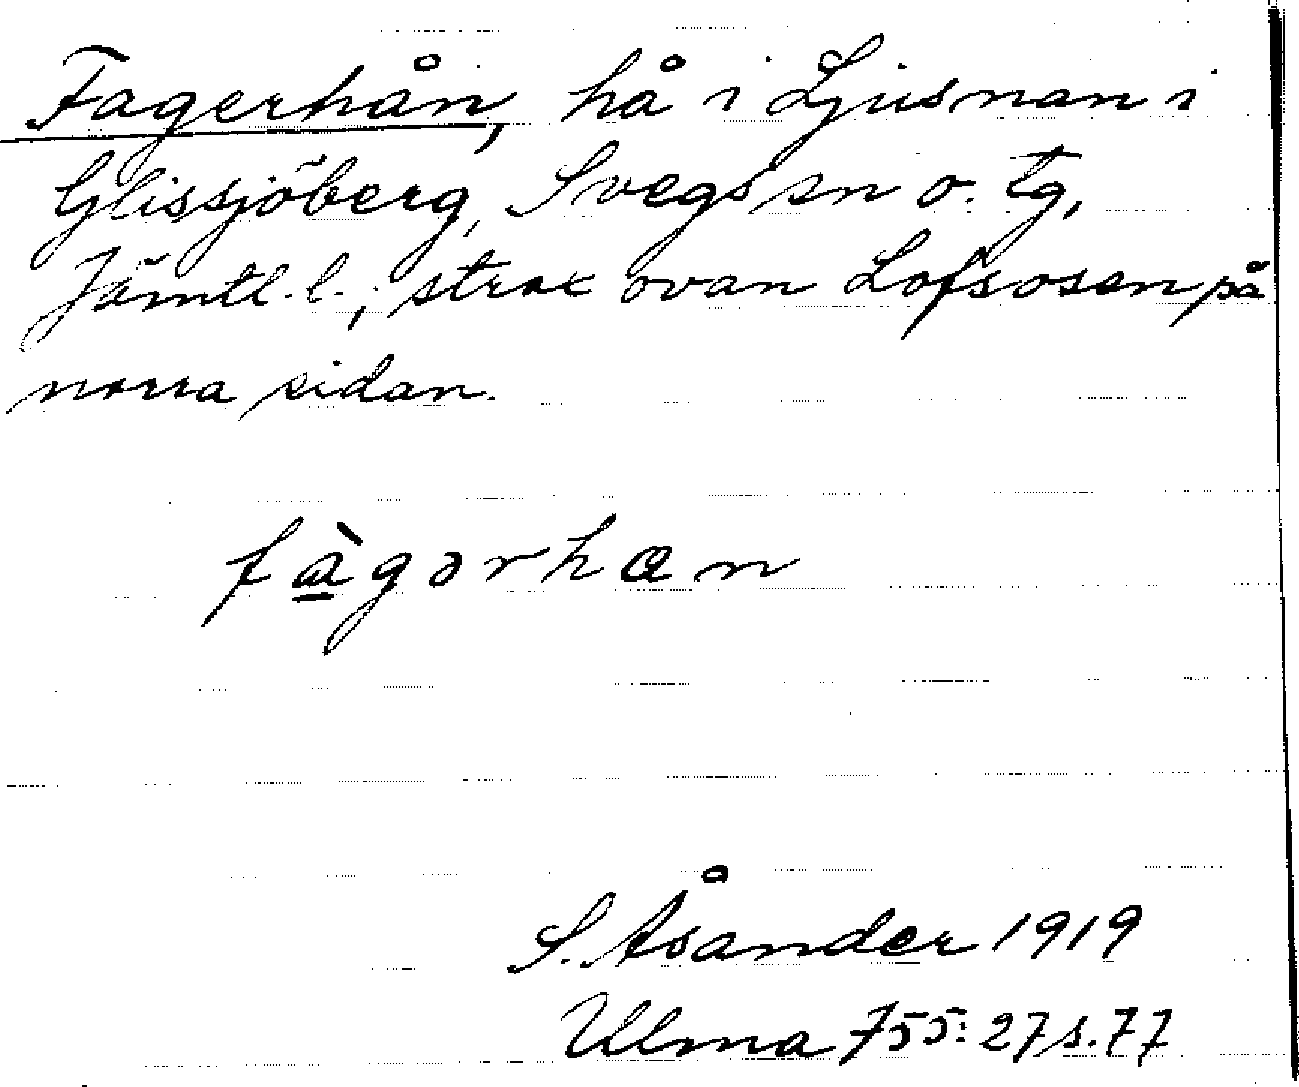 Fagerhån, hå i Ljusnan i
Glissjöberg, Svegs sn o. tg,
Jämtl. l., strax ovan Lofsosen på
norra sidan.
fà̲gərhæn
S. Åsander 1919
Ulma 755: 27 s. 77